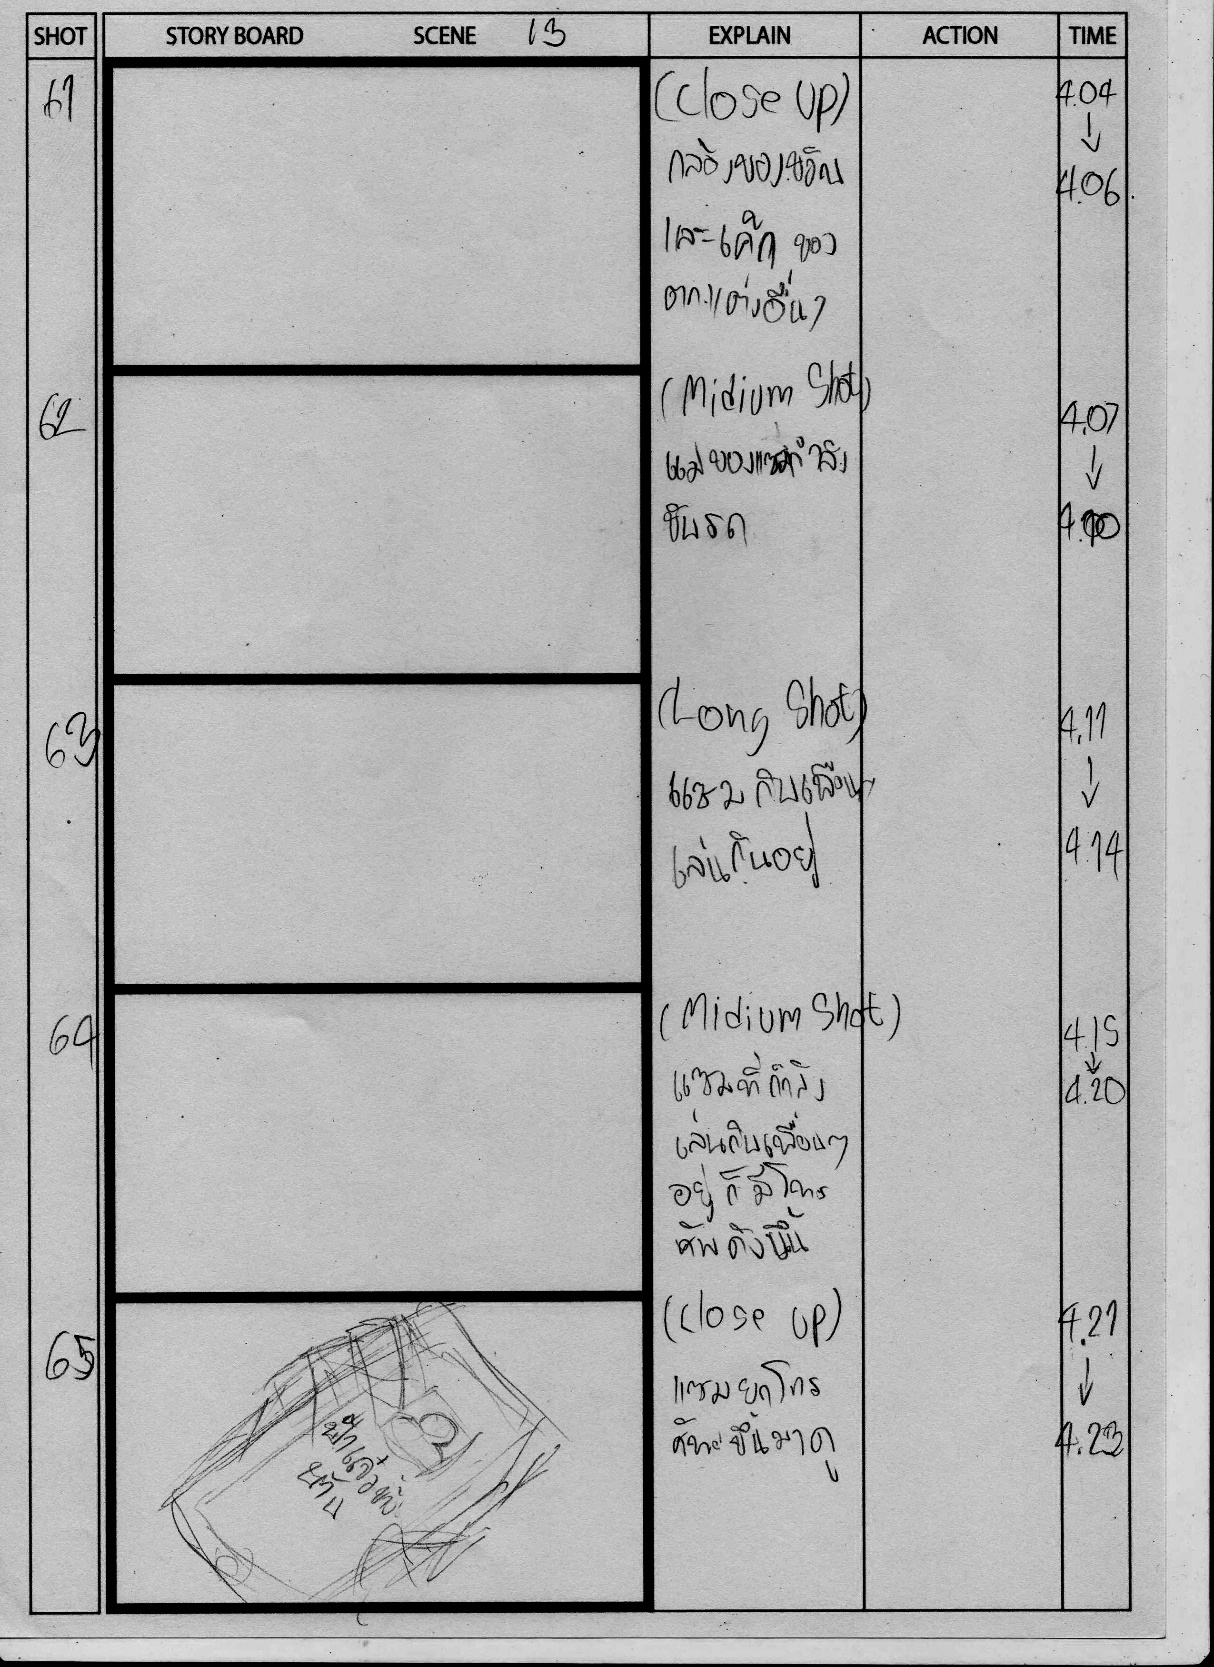 SHOT STORY BOARD SCENE 13 EXPLAIN ACTION TIME
61
(Close Up)
กล่องของขวัญ
และเค้ก ของ
ตกแต่งอื่นๆ
4.04
4.06
62
(Midium Shot)
แม่ของแซมกำลัง
ขับรถ
4.07
4.10
63
(Long Shot)
แซม กับเพื่อนๆ
เล่นกันอยู่
4.11
4.14
64
(Midium Shot)
แซมที่กำลัง
เล่นกับเพื่อนๆ
อยู่ก็มีโทร
ศัพดังขึ้น
4.15
4.20
65
(Close up)
แซมยกโทร
ศัพขึ้นมาดู
4.21
4.23